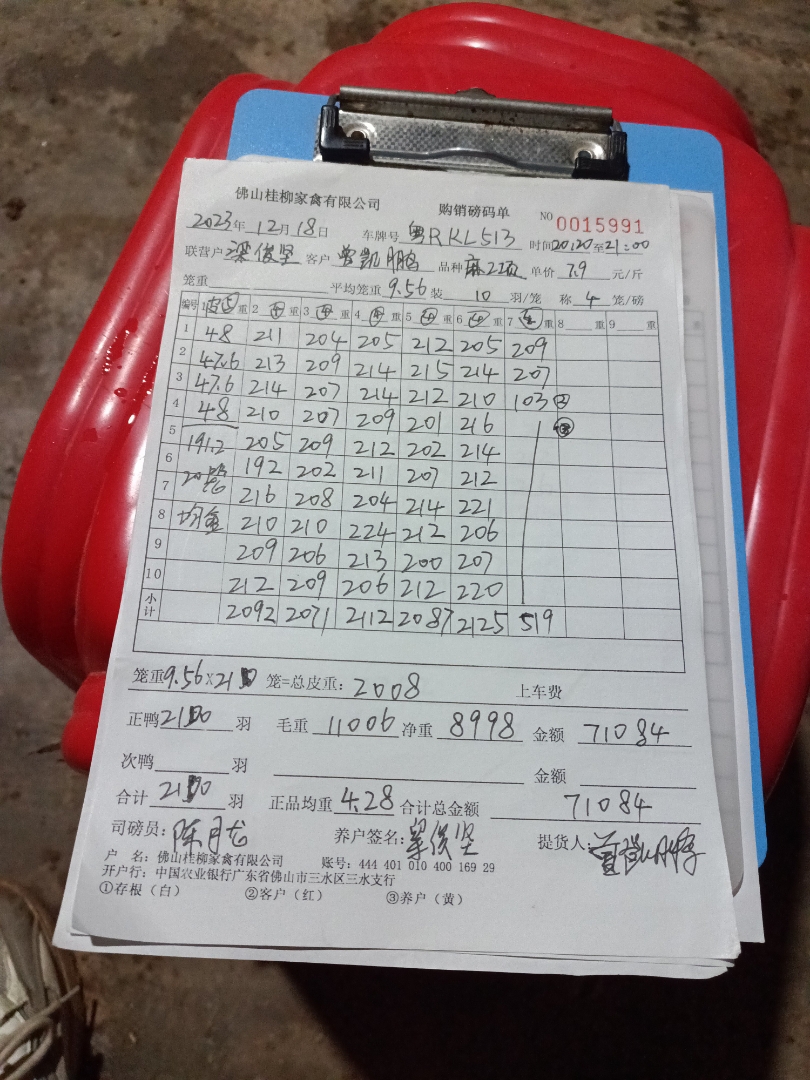 佛山桂柳家禽有限公司 购销磅码单 NO 0015991
2023年12月18日 车牌号 粤RKL513 时间20:20至21:00
联营户 梁俊坚 客户 曾凯鹏 品种 麻 单价 7.9 元/斤
笼重 平均笼重 9.56 装 10 羽/笼 称 4 笼/磅
编号 1 皮 重 2 母 重 3 母 重 4 母 重 5 母 重 6 母 重 7 重 8 重 9 重
1 48 211 204 205 212 205 209
2 47.6 213 209 214 215 214 207
3 47.6 214 207 214 212 210 103 ②
4 48 210 207 209 201 216
5 191.2 205 209 212 202 214
6 20 192 202 211 207 212
7 216 208 204 214 221
8 均 210 210 224 212 206
9 209 206 213 200 207
10 212 209 206 212 220
小计 2092 2071 2112 2087 2125 519
笼重9.56×210 笼=总皮重: 2008 上车费
正鸭2100 羽 毛重 11006 净重 8998 金额 71084
次鸭 羽 金额
合计 2100 羽 正品均重 4.28 合计总金额 71084
司磅员: 陈月龙 养户签名: 梁俊坚 提货人: 曾凯鹏
户 名: 佛山桂柳家禽有限公司 账号: 444 401 010 400 169 29
开户行: 中国农业银行广东省佛山市三水区三水支行
①存根(白) ②客户(红) ③养户(黄)